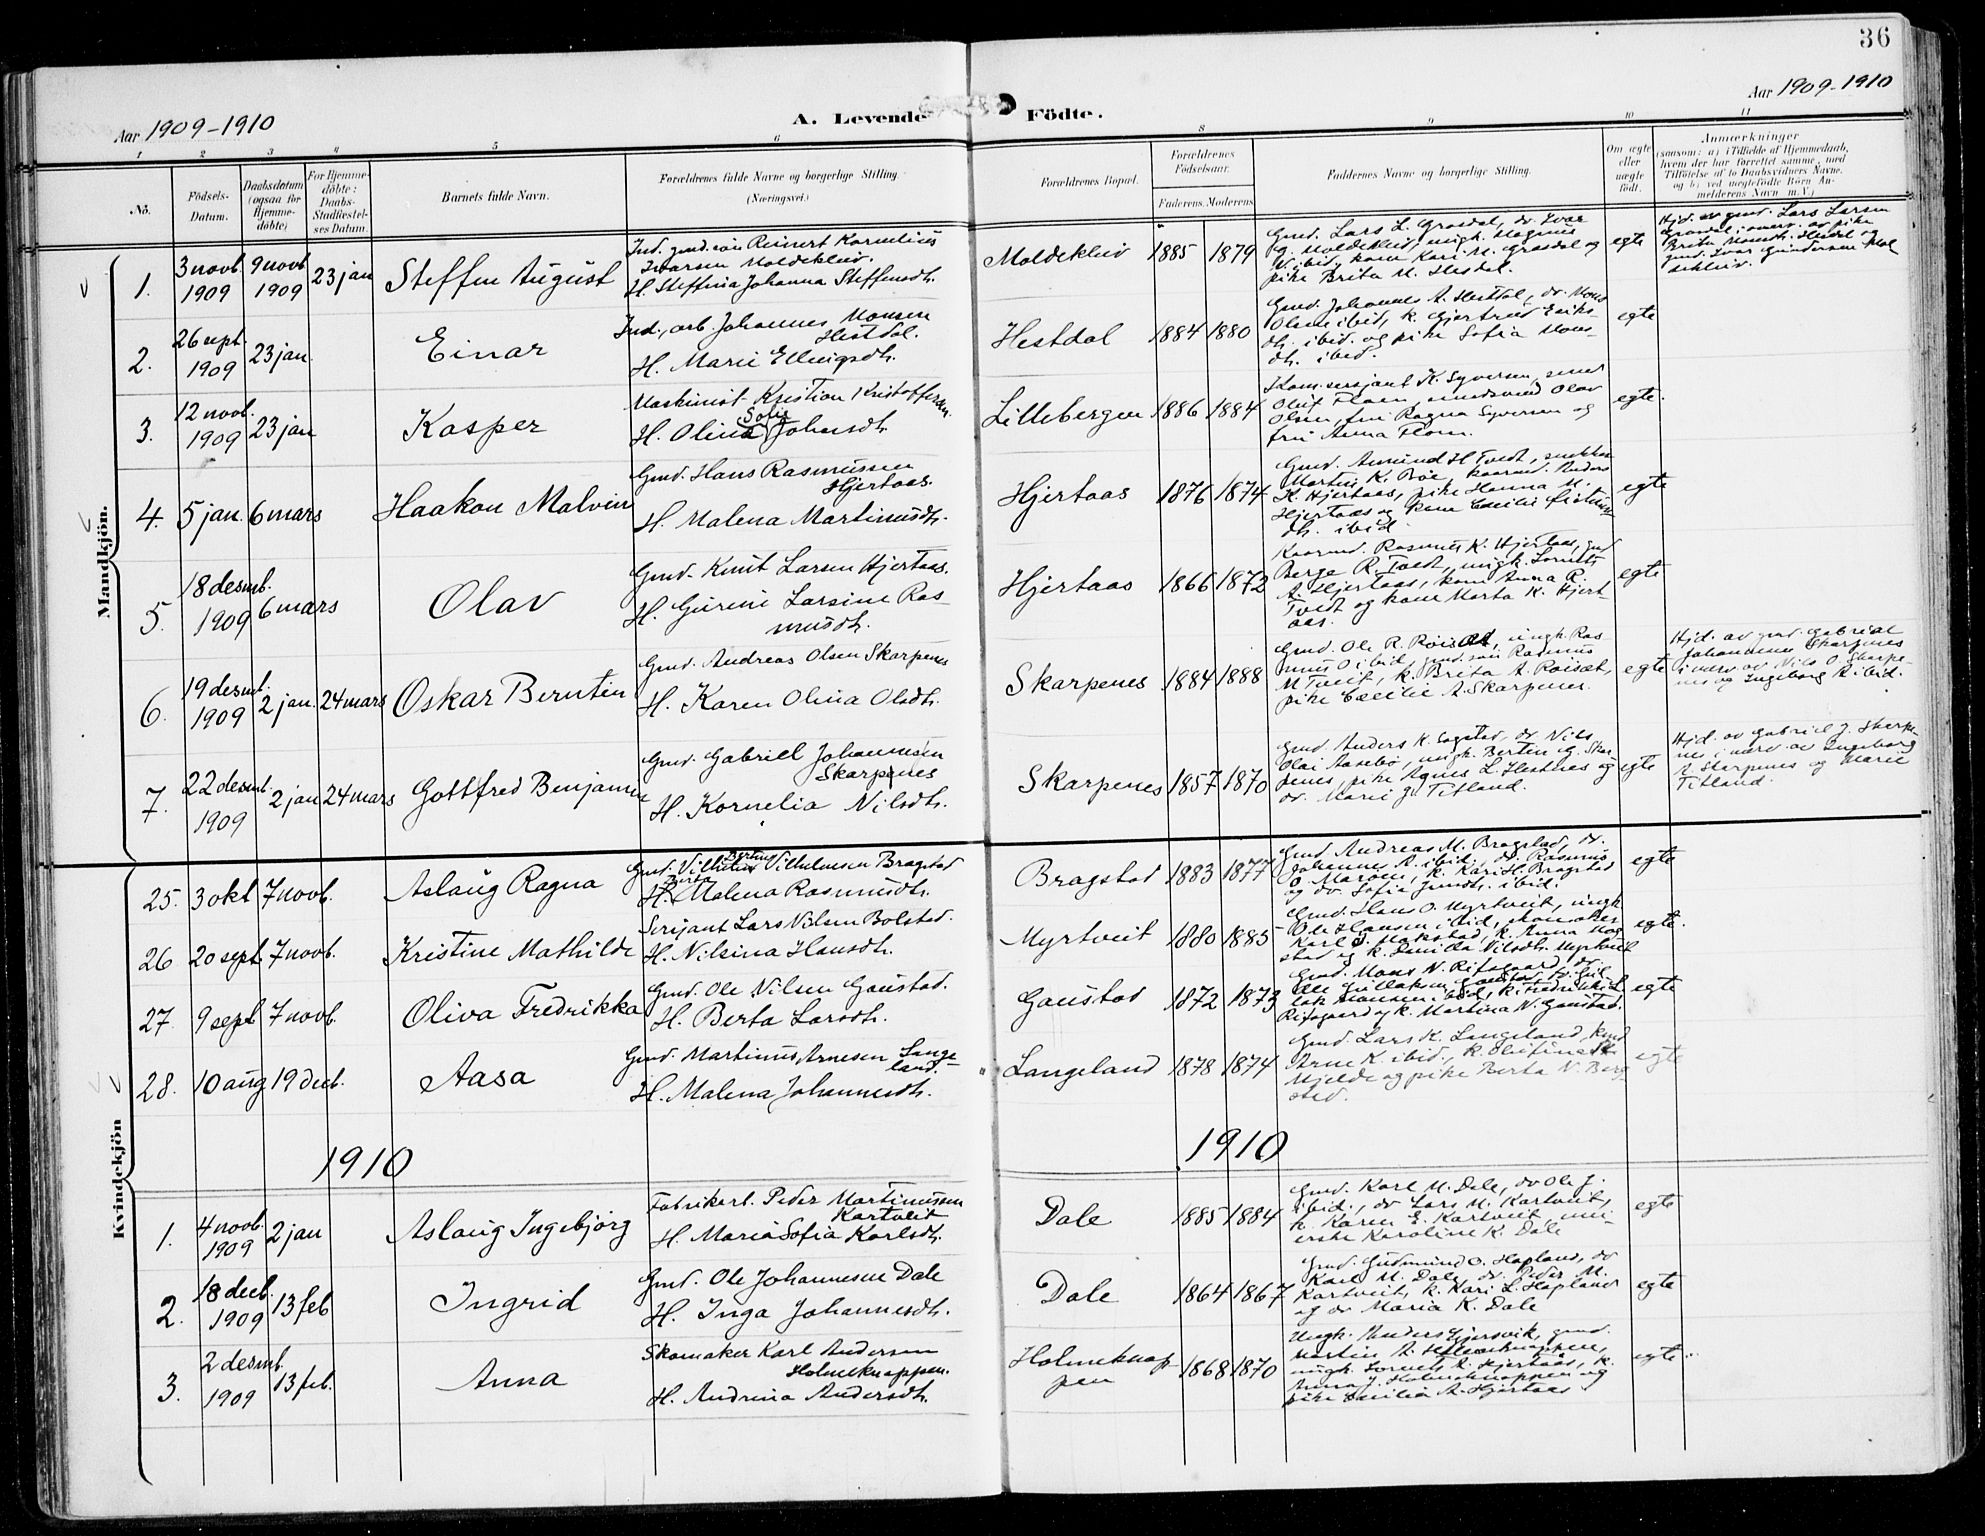 36
Aar 1909-1910
A. Levende Födte.
Aar 1909-1910
1 2 3 4 5 6 8 9 10 11
No.
Födsels-Datum.
Daabsdatum (ogsaa for Hjemme-döbte)
For Hjemme-döbte: Daabs-Stadfæstel-ses Datum.
Barnets fulde Navn.
Forældrenes fulde Navne og borgerlige Stilling.
(Næringsvei.)
Forældrenes Bopæl.
Forældrenes Födselsaar.
Faderens. Moderens.
Faddernes Navne og borgerlige Stilling.
Om ægte eller uægte födt.
Anmærkninger
(saasom: a) i Tilfælde af Hjemmedaab,
hvem der har forrettet samme, med
Tilföielse af to Daabsvidners Navne.
og b) ved uægtefödte Börn An-
melderens Navn m.V.)
Mandkjön.
1. 3 novb. 1909 9 novb 1909 23 jan Steffen August
Ind. gmd.sön Reinert Kornelius
Ivarsen Moldekleiv.
H. Steffina Johanna Steffensdtr.
Moldekleiv 1885 1879
Gmd. Lars L. Grasdal, dr. Ivar
G. Moldekleiv, ungk. Magnus
N. ibid, kone Kari M. Grasdal og
pike Brita M. Hesdal.
egte
Hjd. av gmd. Lars Larsen
Grasdal, i nærv. av pike
Brita Monsdtr. Hesdal og
gmd. Ivar Gundersen Mol
dekleiv.
2. 26 sept. 1909 23 jan. Einar
Ind., arb. Johannes Monsen
Hestdal.
H. Marie Ellingsdtr.
Hestdal 1884 1880
Gmd. Johannes A. Hestdal, dr. Mons
Olsen ibid, k. Gjertrud Eriks-
dtr. ibid. og pike Sofia Mons-
dtr. ibid.
egte
3. 12 novb. 1909 23 jan Kasper
Maskinist Kristian Kristoffersen.
H. Olina Sofie Johansdtr.
Lillebergen 1886 1884
Kom.sersjant K. Syversen, smed
Oluf Floen, smedsvend Olav
Olsen, fru Ragna Syversen og
fru Anna Floen.
egte.
4. 5 jan. 6 mars Haakon Malvin
Gmd. Hans Rasmussen
Hjertaas.
H. Malena Martinusdtr.
Hjertaas 1876 1874
Gmd. Amund H. Tvedt, snekker
Martin K. Böe, kaarmd. Anders
K. Hjertaas, pike Hanna M.
Hjertaas og kone Cecilie
dtr. ibid.
egte
5. 18 desmb. 1909 6 mars Olav
Gmd. Knut Larsen Hjertaas.
H. Gurine Larsine Ras-
musdtr.
Hjertaas 1866 1872
Kaarmd. Rasmus K. Hjertaas, gmd
Berge R. Tvedt, ungk. Tomas
A. Hjertaas, kone Anna R.
Tvedt og kone Marta K. Hjert-
aas.
egte
6. 19 desmb. 1909 2 jan. 24 mars Oskar Berntin
Gmd. Andreas Olsen Skarpenes
H. Karen Olina Olsdtr.
Skarpenes 1884 1888
Gmd. Ole R. Röisæt, ungk. Ras-
mus O. ibid, gmd.sön Rasmus
M Tveit, k. Brita A. Röisæt,
pike Cecilie A. Skarpenes.
egte
Hjd. av gmd. Gabriel
Johannesen Skarpenes
i nærv. av Nils O. Skarpe-
nes og Ingeborg K. ibid.
7. 22 desmb. 1909 2 jan 24 mars Gottfred Benjamin
Gmd. Gabriell Johannesen
Skarpenes
H. Kornelia Nilsdtr.
Skarpenes 1857 1870
Gmd. Anders K. Sagstad, dr. Nils
Olai Aasebö, ungk. Bertin G. Skar-
penes, pike Agnes L. Hestnes og
dr. Marie J. Titland.
egte
Hjd. av Gabriel J. Skarpe-
nes i nærv. av Ingeborg
A. Skarpenes og Marie
Titland.
Kvindekjön
25. 3 okt 7 novb. Aslaug Ragna
Gmd. Vilhelm Berting Vilhelmsen Bragstad
H. Berta Malena Rasmusdtr.
Bragstad 1883 1877
Gmd. Andreas M. Bragstad, dr.
Johannes A. ibid., dr. Rasmus
O. Maröen, k. Kari H. Bragstad
og dr. Sofia Gundtr. ibid.
egte
26 20 sept. 7 novb. Kristine Mathilde
Serjant Lars Nilsen Bolstad.
H. Nilsina Hansdtr.
Myrtveit 1880 1885
Gmd. Hans O. Myrtveit, ungk
Ole Hansen ibid, skomaker
Karl J. Hokstad, k. Anna Hog
stad og k. Nilsdtr. Myrtveit
egte.
27. 9 sept 7 novb. Oliva Fredrikka
Gmd. Ole Nilsen Gaustad.
H. Berta Larsdtr.
Gaustad 1872 1873
Gmd. Mons N. Risogaard, dr.
Ole Gullaksen Gaustad, dr. Gul-
lak Monsen ibid, k. Fredrikke L
Risogaard og k. Martina N. Gaustad.
egte
28. 10 aug 19 decb. Aasa
Gmd. Martinus Arnesen Lange-
land.
H. Malena Johannesdtr.
Langeland 1878 1874
Gmd. Lars K. Langeland, kmd
Arne K. ibid., k. Olefine K.
Mjelde og pike Berta N. Berg
sted.
egte
1910 1910
1. 4 novb. 1909 2 jan Aslaug Ingebjörg
Fabrikarb. Peder Martinussen
Kartveit
H. Maria Sofia Karlsdtr.
Dale 1885 1884
Gmd. Karl M. Dale, dr Ole J.
ibid., dr Lars M. Kartveit,
k. Karen E. Kartveit, mei-
erske Karoline K. Dale
egte
2. 18 decb. 1909 13 feb Ingrid
Gmd. Ole Johannesen Dale
H. Inga Johannesdtr.
Dale 1864 1867
Gmd. Gudmund O. Hopland, dr
Karl M. Dale, dr. Peder M.
Kartveit, k. Kari L. Hopland
og dr Maria K. Dale
egte
3. 2 desmb. 1909 13 feb. Anna
Skomaker Karl Andersen
Holmeknappen.
H. Andrina Andersdtr.
Holmeknap-
pen 1868 1870
Ungk. Anders Gjersvik, gmd.
Martin A. Holmeknappen,
ungk. Tomas A. Hjertaas, k.
Anna J. Holmeknappen og
pike Cecilia A. Hjertaas
egte